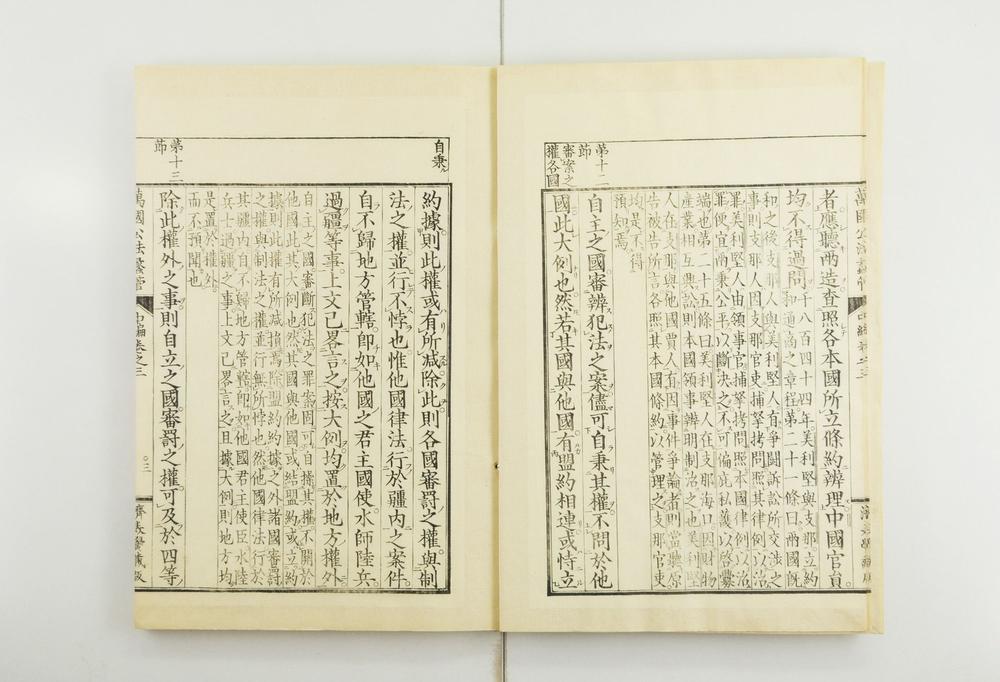 者應聽兩造查照各本國所立條約辨理中國官員
均不得過問一千八百四十四年美利堅與支那立約
和通商之章程第二十一條曰兩國既
和之後支那人與美利堅人有爭鬪訴訟所交涉之
事則支那人因支那官吏捕拏拷問照其律例以治
罪美利堅人由領事官捕拏拷問照本國律例以治
罪便宜兩秉公平以斷決之不可偏庇私義以啓釁
端也第二十五條曰美利堅人在支那海口因財物
產業相互興訟則本國領事辨明制治之也美利堅
人在支那與他國商人有因事件爭論者則當聽原
告被告所言各照其本國條約以管理之支那官吏
均是不得
預知焉
第十二
節
審案之
權各國
自主之國審辨犯法之案儘可自秉其權不問於他
國此大例也然若其國與他國有盟約相連或恃立
自秉
約據則此權或有所減除此則各國審罰之權與制
法之權並行不悖也惟他國律法行於疆內之案件
自不歸地方管轄卽如他國之君主國使水師陸兵
過疆等事上文已畧言之按大例均置於地方權外
自主之國審斷犯法之罪案固可自操其權不關於
他國此其大例也然其國與他國或結盟約或立約
據則此權有所減損焉除盟約約據之外諸國審罰
之權與制法之權並行無所悖也然他國律法行於
其疆內自不歸地方管轄卽如他國君主使臣水陸
兵士過疆之事上文已畧言之且據大例則地方均
是置於權外
而不預聞也
第十三
節
除此權外之事則自立之國審罰之權可及於四等
萬國公法蠡管
中編卷之三
三
濟美黌藏版